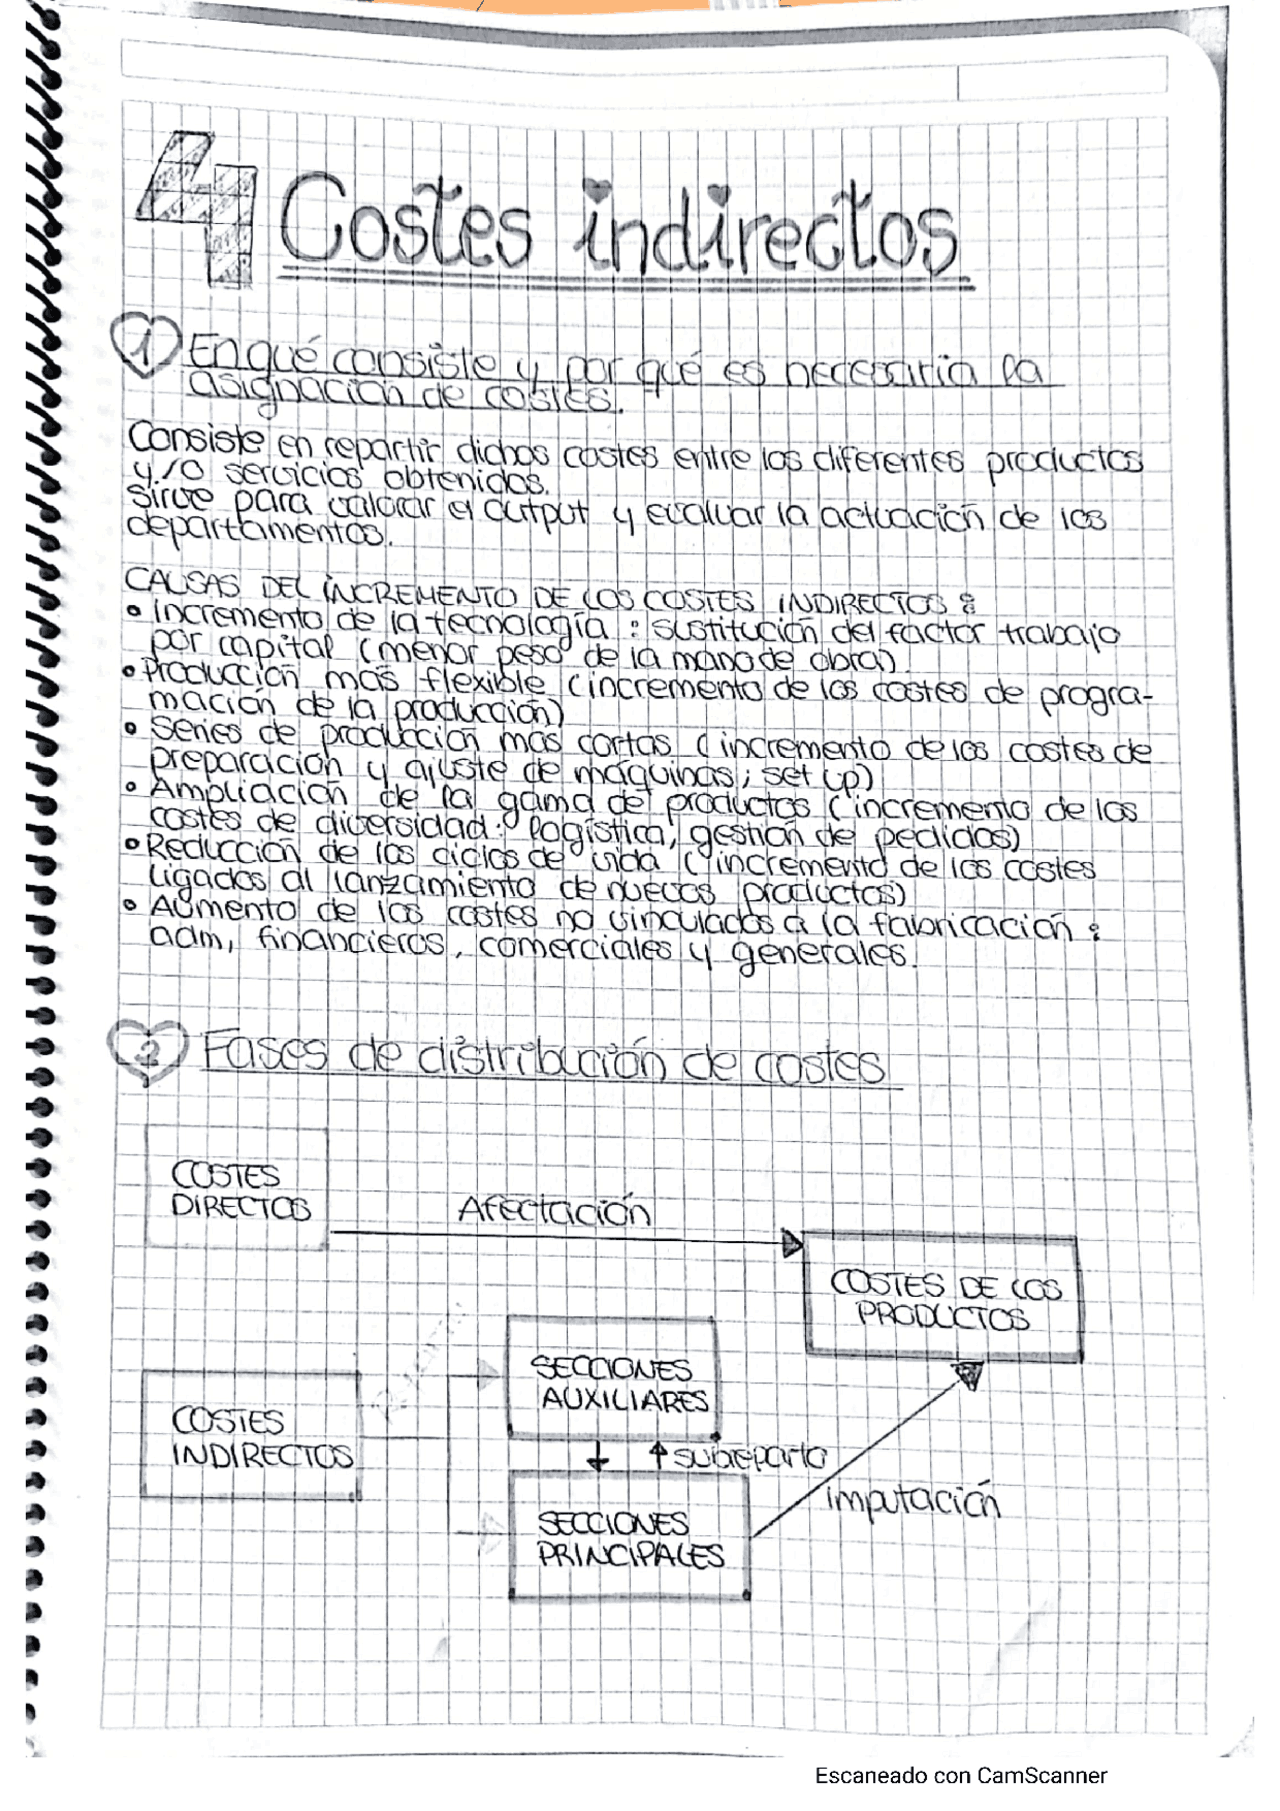 4 Costes indirectos
1 En qué consiste y por qué es necesaria la
asignación de costes.
Consiste en repartir dichos costes entre los diferentes productos
y/o servicios obtenidos.
Sirve para valorar el output y evaluar la actuación de los
departamentos.
CAUSAS DEL INCREMENTO DE LOS COSTES INDIRECTOS:
• Incremento de la tecnología: sustitución del factor trabajo
por capital (menor peso de la mano de obra)
• Producción más flexible (incremento de los costes de progra-
mación de la producción)
• Series de producción más cortas (incremento de los costes de
preparación y ajuste de máquinas; set up)
• Ampliación de la gama de productos (incremento de los
costes de diversidad: logística, gestión de pedidos)
• Reducción de los ciclos de vida (incremento de los costes
ligados al lanzamiento de nuevos productos)
• Aumento de los costes no vinculados a la fabricación:
adm, financieros, comerciales y generales.
2 Fases de distribución de costes
COSTES
DIRECTOS
Afectación
COSTES DE LOS
PRODUCTOS
SECCIONES
AUXILIARES
COSTES
INDIRECTOS
subreparto
imputación
SECCIONES
PRINCIPALES
Escaneado con CamScanner